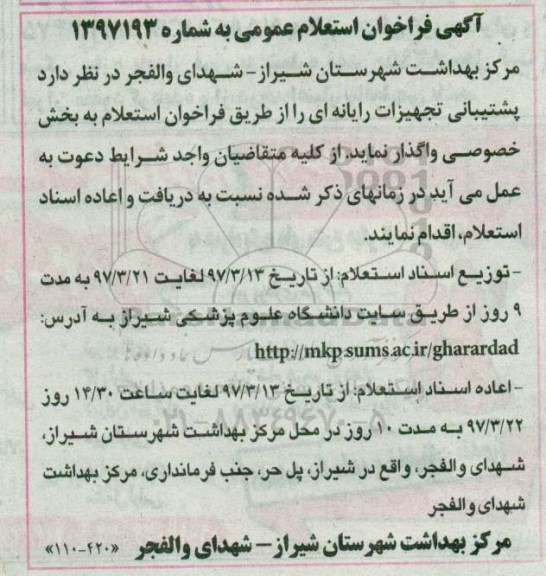 آگهی فراخوان استعلام عمومی به شماره ۱۳۹۷۱۹۳
مرکز بهداشت شهرستان شیراز- شهدای والفجر در نظر دارد
پشتیبانی تجهیزات رایانه ای را از طریق فراخوان استعلام به بخش
خصوصی واگذار نماید. از کلیه متقاضیان واجد شرایط دعوت به
عمل می آید در زمانهای ذکر شده نسبت به دریافت و اعاده اسناد
استعلام، اقدام نمایند.
- توزیع اسناد استعلام: از تاریخ ۹۷/۳/۱۳ لغایت ۹۷/۳/۲۱ به مدت
۹ روز از طریق سایت دانشگاه علوم پزشکی شیراز به آدرس:
http://mkp.sums.ac.ir/gharardad
- اعاده اسناد استعلام: از تاریخ ۹۷/۳/۱۳ لغایت ساعت ۱۴/۳۰ روز
۹۷/۳/۲۲ به مدت ۱۰ روز در محل مرکز بهداشت شهرستان شیراز،
شهدای والفجر، واقع در شیراز، پل حر، جنب فرمانداری، مرکز بهداشت
شهدای والفجر
مرکز بهداشت شهرستان شیراز – شهدای والفجر «۴۲۰-۱۱۰»